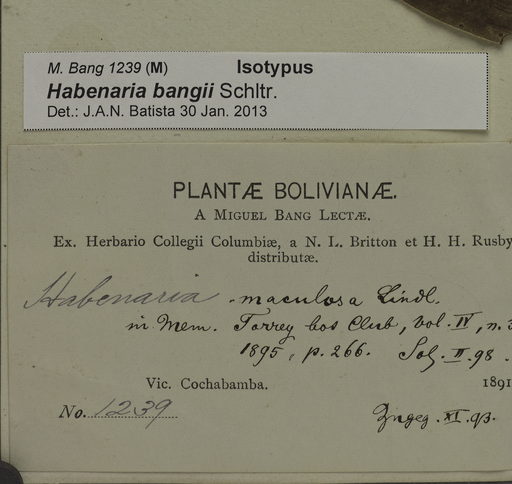 M. Bang 1239 (M) Isotypus
Habenaria bangii Schltr.
Det.: J.A.N. Batista 30 Jan. 2013
PLANTÆ BOLIVIANÆ.
A MIGUEL BANG LECTÆ.
Ex. Herbario Collegii Columbiæ, a N. L. Britton et H. H. Rusby
distributæ.
Habenaria maculosa Lindl.
in Mem. Torrey bos Club, vol. IV, n. 3
1895, p. 266. II. 98.
Vic. Cochabamba. 1891
No. 1239 XI. 93.